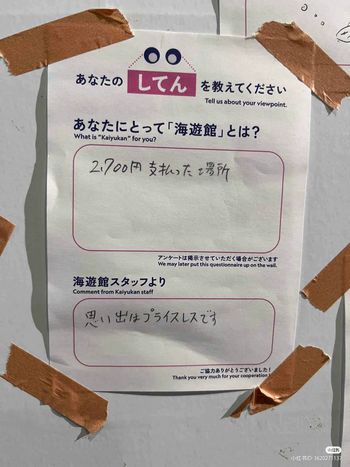 あなたの してん を教えてください
Tell us about your viewpoint.
あなたにとって「海遊館」とは?
What is "Kaiyukan" for you?
2,700円 支払った場所
アンケートは掲示させていただく場合がございます
We may later put this questionnaire up on the wall.
海遊館スタッフより
Comment from Kaiyukan staff
思い出はプライスレスです
ご協力ありがとうございました!
Thank you very much for your cooperation!
小红书